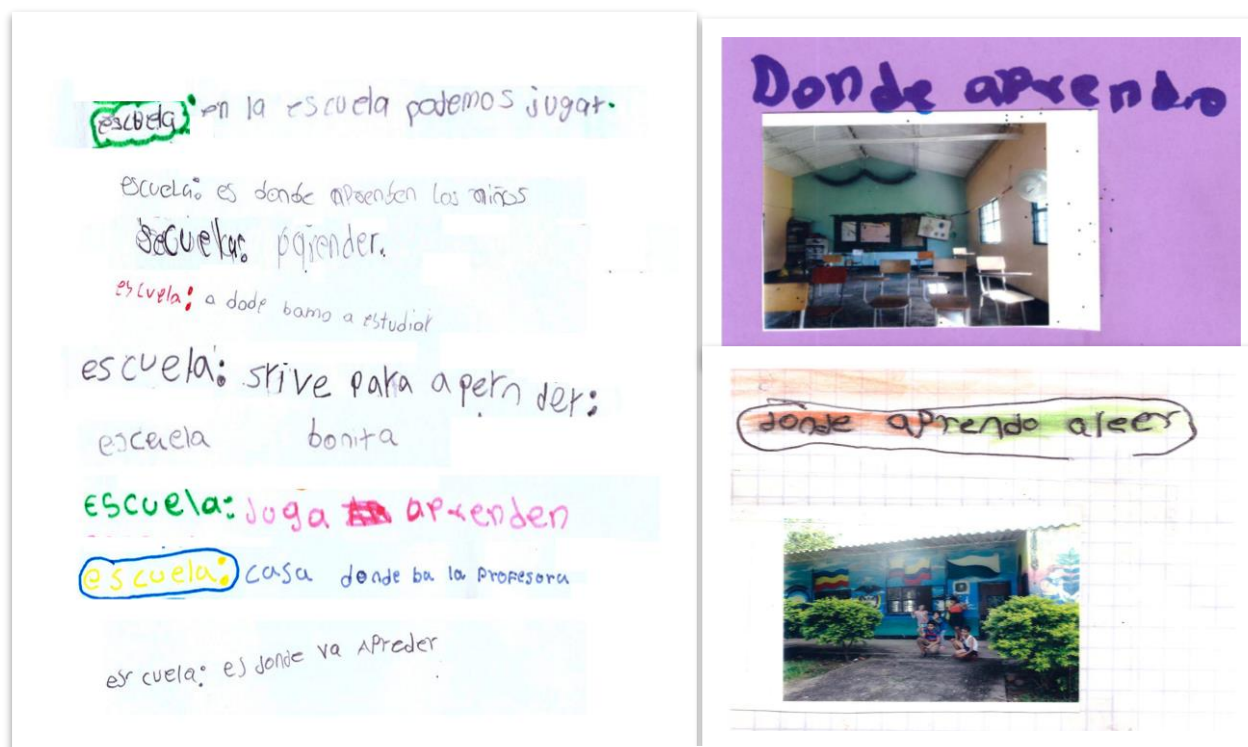 escuela: en la escuela podemos jugar.
escuela: es donde aprenden los niños
escuela: parender.
escuela: a dode bamo a estudiar
escuela: srive para apernder:
escuela bonita
escuela: juga aprenden
escuela: casa donde ba la profesora
escuela: es donde va Apreder
Donde aprendo
donde aprendo aleer